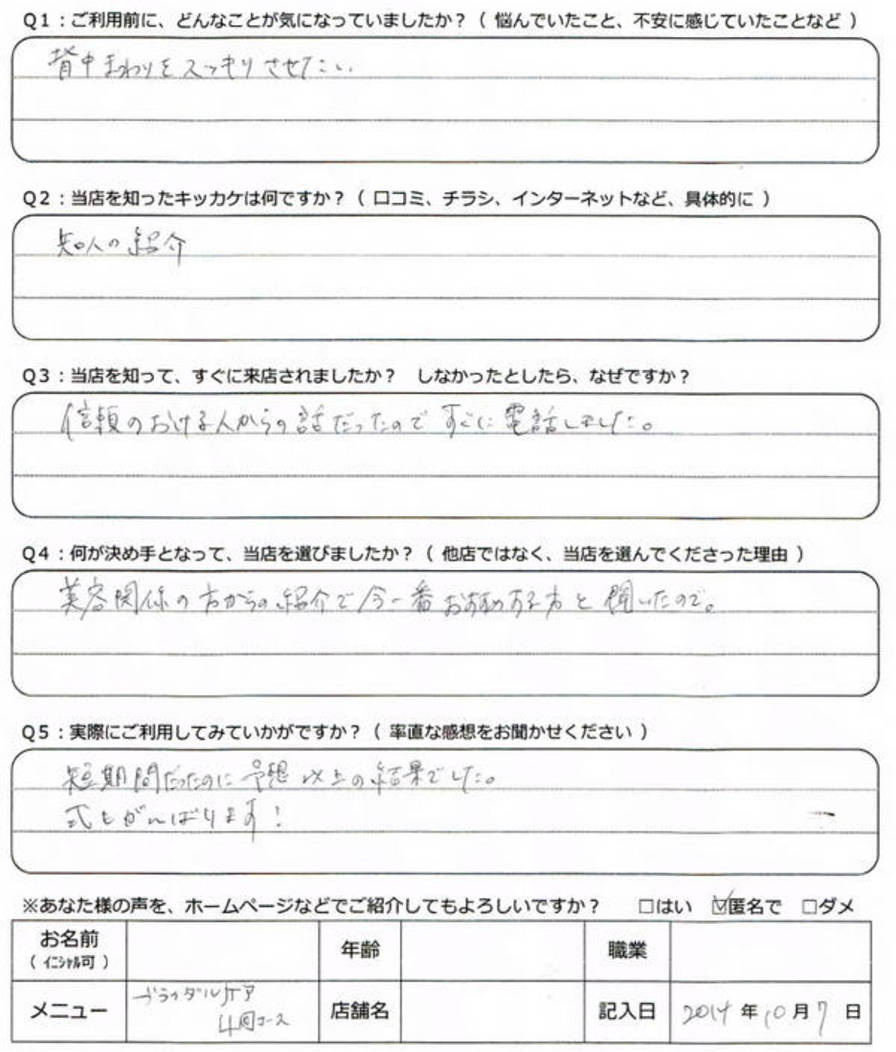 Q1：ご利用前に、どんなことが気になっていましたか？（ 悩んでいたこと、不安に感じていたことなど ）
背中まわりをスッキリさせたい
Q2：当店を知ったキッカケは何ですか？（ 口コミ、チラシ、インターネットなど、具体的に ）
知人の紹介
Q3：当店を知って、すぐに来店されましたか？　しなかったとしたら、なぜですか？
信頼のおける人からの話だったので すぐに電話しました。
Q4：何が決め手となって、当店を選びましたか？（ 他店ではなく、当店を選んでくださった理由 ）
美容関係の方からの紹介で今一番おすすめする方と聞いたので。
Q5：実際にご利用してみていかがですか？（ 率直な感想をお聞かせください ）
短期間だったのに予想以上の結果でした。
式もがんばります！
※あなた様の声を、ホームページなどでご紹介してもよろしいですか？　□はい　☑匿名で　□ダメ
お名前　年齢　職業
（ イニシャル可 ）
メニュー　ブライダルケア　店舗名　記入日　2014年10月7日
4回コース